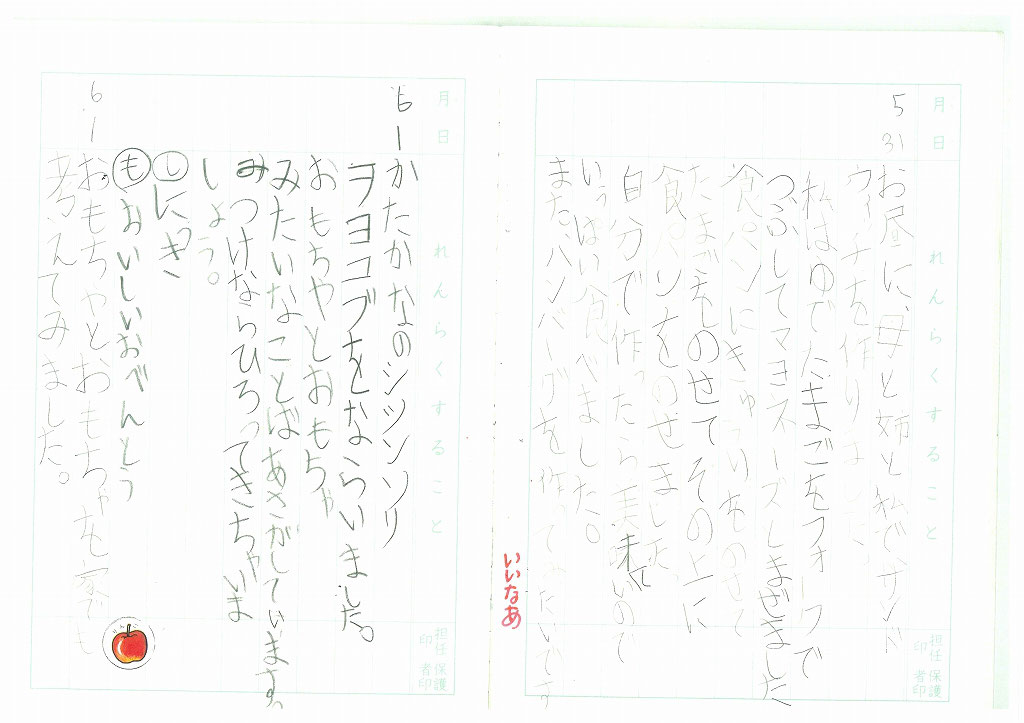 月 日
れんらくすること
担任印
保護者印
5 31
お昼に、母と姉と私で、サンド
ウィチを作りました
私はゆでたまごをフォークで
つぶしてマヨネーズとまぜました
食パンにきゅうりをのせて
たまごをのせてその上に
食パンをのせました。
自分で作ったら美味しいので
いっぱい食べました。
また。ハンバーグを作ってみたいです
いいなあ
月 日
れんらくすること
担任印
保護者印
6 1
かたかなのシツンソリ
ヲヨコブをならいました。
おもちゃとおもちゃ
みたいなことばあさがしています。
みつけならひろってきちゃいま
しょう。
しにっき
もおいしいおべんとう
6 1
おもちゃとおもちゃを家でも
考えてみました。